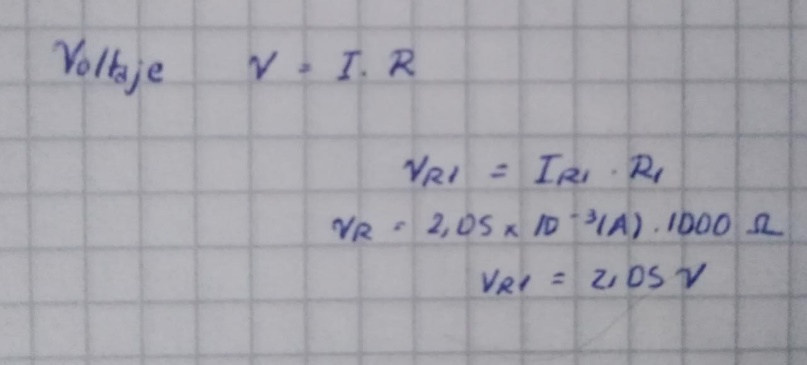 Voltaje V = I. R
VR1 = IR1 . R1
VR = 2,05 x 10⁻³(A) . 1000 Ω
VR1 = 2,05 V